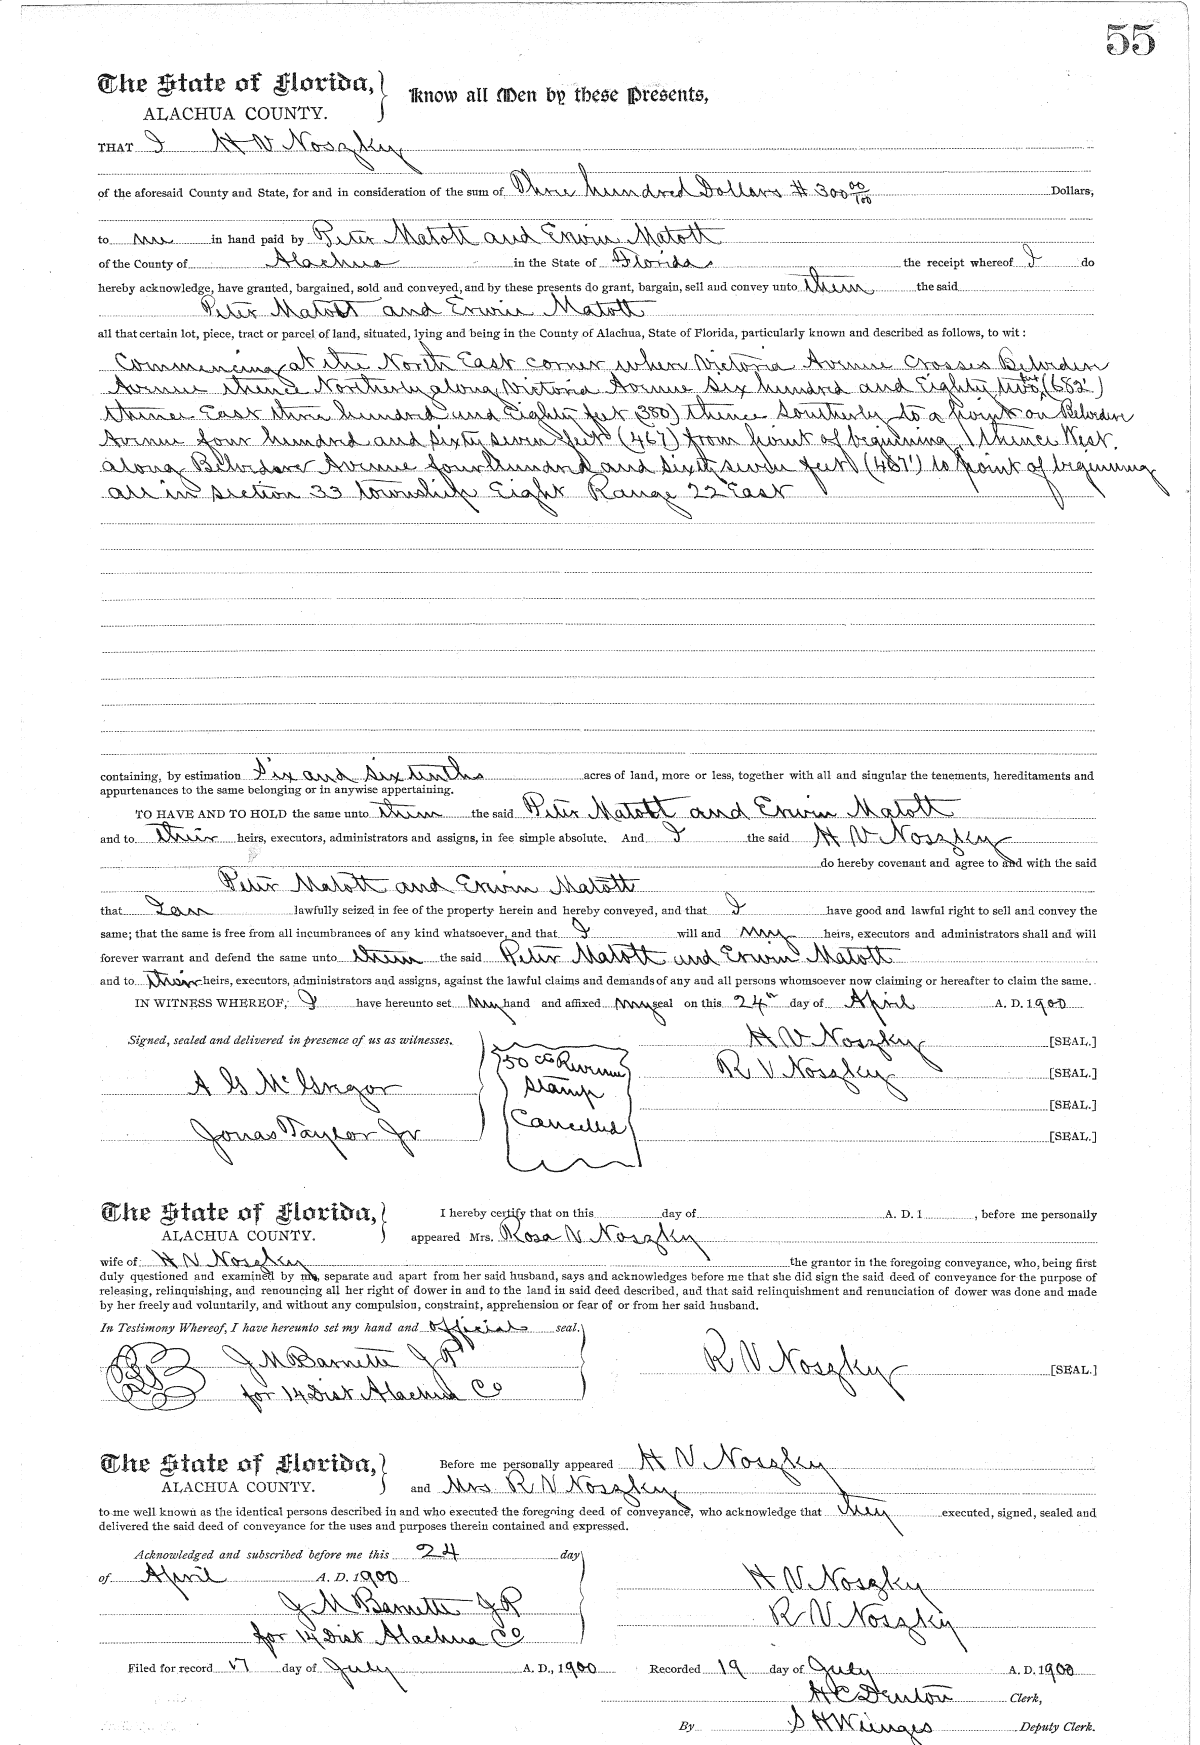 55
The State of Florida,
ALACHUA COUNTY.
Know all Men by these Presents,
THAT I H V Noszky
of the aforesaid County and State, for and in consideration of the sum of Three hundred Dollars # 300 00/100 Dollars,
to me in hand paid by Peter Matott and Erwin Matott
of the County of Alachua in the State of Florida the receipt whereof I do
hereby acknowledge, have granted, bargained, sold and conveyed, and by these presents do grant, bargain, sell and convey unto them the said
Peter Matott and Erwin Matott
all that certain lot, piece, tract or parcel of land, situated, lying and being in the County of Alachua, State of Florida, particularly known and described as follows, to wit:
Commencing at the North East corner where Victoria Avenue Crosses Belvedere
Avenue thence Northerly along Victoria Avenue six hundred and Eighty two feet (682')
thence East three hundred and Eighty feet 380) thence Southerly to a point on Belvedere
Avenue four hundred and sixty seven feet (467) from point of beginning, thence West
along Belvedere Avenue four hundred and sixty seven feet (467') to point of beginning
all in Section 33 township Eight Range 22 East
containing, by estimation Six and six tenths acres of land, more or less, together with all and singular the tenements, hereditaments and
appurtenances to the same belonging or in anywise appertaining.
TO HAVE AND TO HOLD the same unto them the said Peter Matott and Erwin Matott
and to their heirs, executors, administrators and assigns, in fee simple absolute. And I the said H V Noszky
do hereby covenant and agree to and with the said
Peter Matott and Erwin Matott
that I am lawfully seized in fee of the property herein and hereby conveyed, and that I have good and lawful right to sell and convey the
same; that the same is free from all incumbrances of any kind whatsoever, and that I will and my heirs, executors and administrators shall and will
forever warrant and defend the same unto them the said Peter Matott and Erwin Matott
and to their heirs, executors, administrators and assigns, against the lawful claims and demands of any and all persons whomsoever now claiming or hereafter to claim the same.
IN WITNESS WHEREOF, I have hereunto set my hand and affixed my seal on this 24th day of April A. D. 1900
Signed, sealed and delivered in presence of us as witnesses.
H V Noszky [SEAL.]
R V Noszky [SEAL.]
[SEAL.]
[SEAL.]
A G McGregor
Jonas Taylor Jr
50 cts Revenue
Stamp
Cancelled
The State of Florida,
ALACHUA COUNTY.
I hereby certify that on this day of A. D. 1 , before me personally
appeared Mrs. Rosa V Noszky
wife of H V Noszky the grantor in the foregoing conveyance, who, being first
duly questioned and examined by me, separate and apart from her said husband, says and acknowledges before me that she did sign the said deed of conveyance for the purpose of
releasing, relinquishing, and renouncing all her right of dower in and to the land in said deed described, and that said relinquishment and renunciation of dower was done and made
by her freely and voluntarily, and without any compulsion, constraint, apprehension or fear of or from her said husband.
In Testimony Whereof, I have hereunto set my hand and official seal.
J M Barnette J P
for 14 Dist Alachua Co
R V Noszky [SEAL.]
The State of Florida,
ALACHUA COUNTY.
Before me personally appeared H V Noszky
and Mrs R V Noszky
to me well known as the identical persons described in and who executed the foregoing deed of conveyance, who acknowledge that they executed, signed, sealed and
delivered the said deed of conveyance for the uses and purposes therein contained and expressed.
Acknowledged and subscribed before me this 24 day
of April A. D. 1900
J M Barnette J P
for 14 Dist Alachua Co
H V Noszky
R V Noszky
Filed for record 17 day of July A. D., 1900 Recorded 19 day of July A. D. 1900
H C Denton Clerk,
By S H Wienges Deputy Clerk.